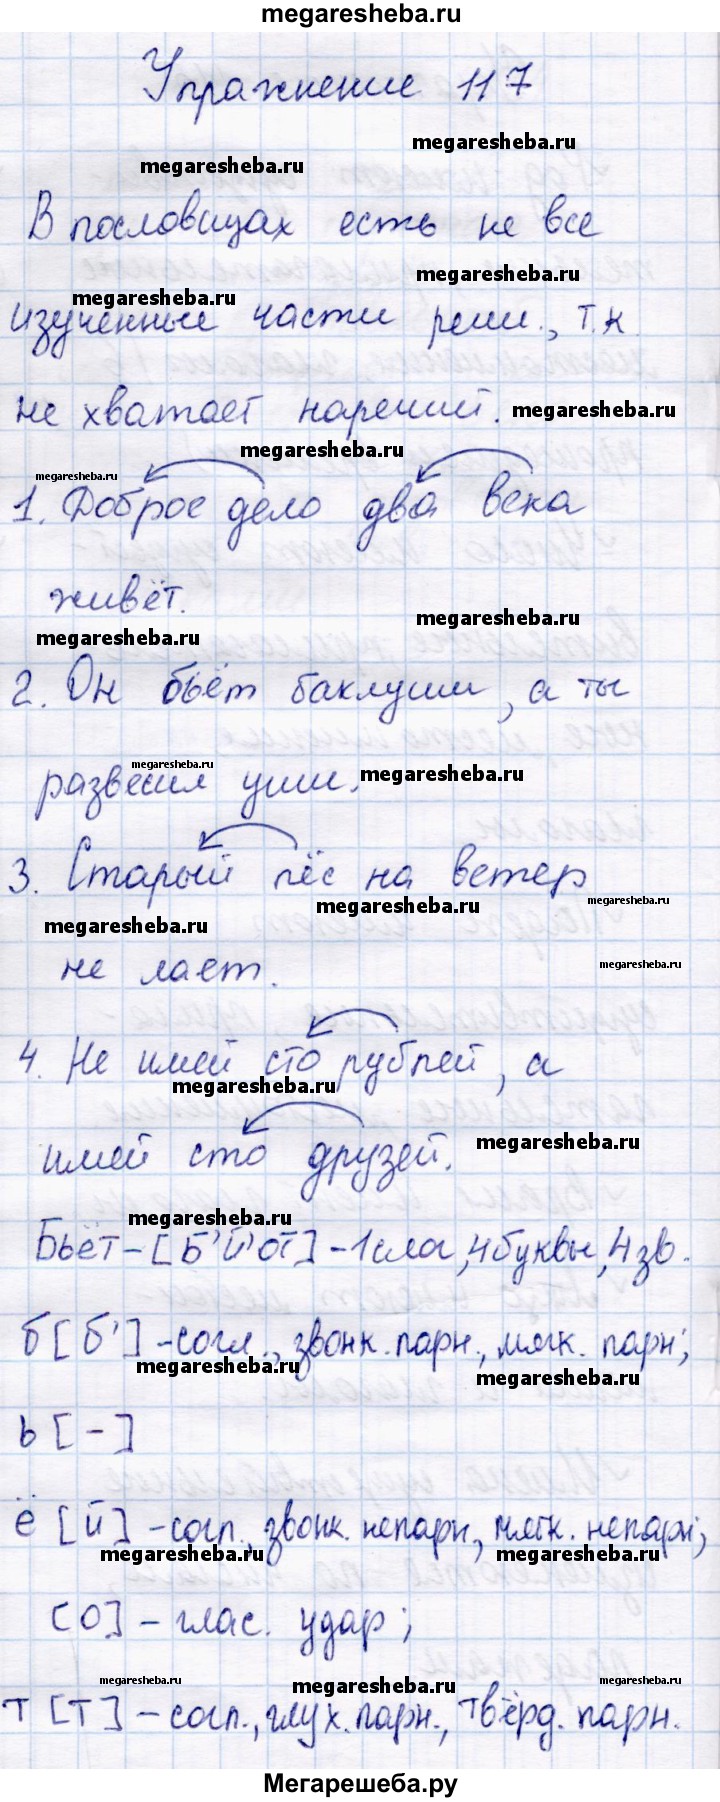 megaresheba.ru
Упражнение 117
megaresheba.ru
megaresheba.ru
В пословицах есть не все
megaresheba.ru
megaresheba.ru
изученные части речи., т.к.
не хватает наречий.
megaresheba.ru
megaresheba.ru
megaresheba.ru
1. Доброе дело два века
живёт.
megaresheba.ru
megaresheba.ru
2. Он бьёт баклуши, а ты
megaresheba.ru
megaresheba.ru
развесил уши.
3. Старый пёс на ветер
megaresheba.ru
megaresheba.ru
megaresheba.ru
не лает.
megaresheba.ru
4. Не имей сто рублей, а
megaresheba.ru
имей сто друзей.
megaresheba.ru
megaresheba.ru
Бьёт – [б'й'от] – 1 слог, 4 буквы, 4 зв.
б [б'] – согл., звонк. парн., мягк. парн;
megaresheba.ru
megaresheba.ru
ь [-]
ё [й] – согл., звонк. непарн, мягк. непарн;
megaresheba.ru
megaresheba.ru
[о] – глас. удар;
megaresheba.ru
megaresheba.ru
megaresheba.ru
т [т] – согл., глух. парн., твёрд. парн.
Мегарешеба.ру